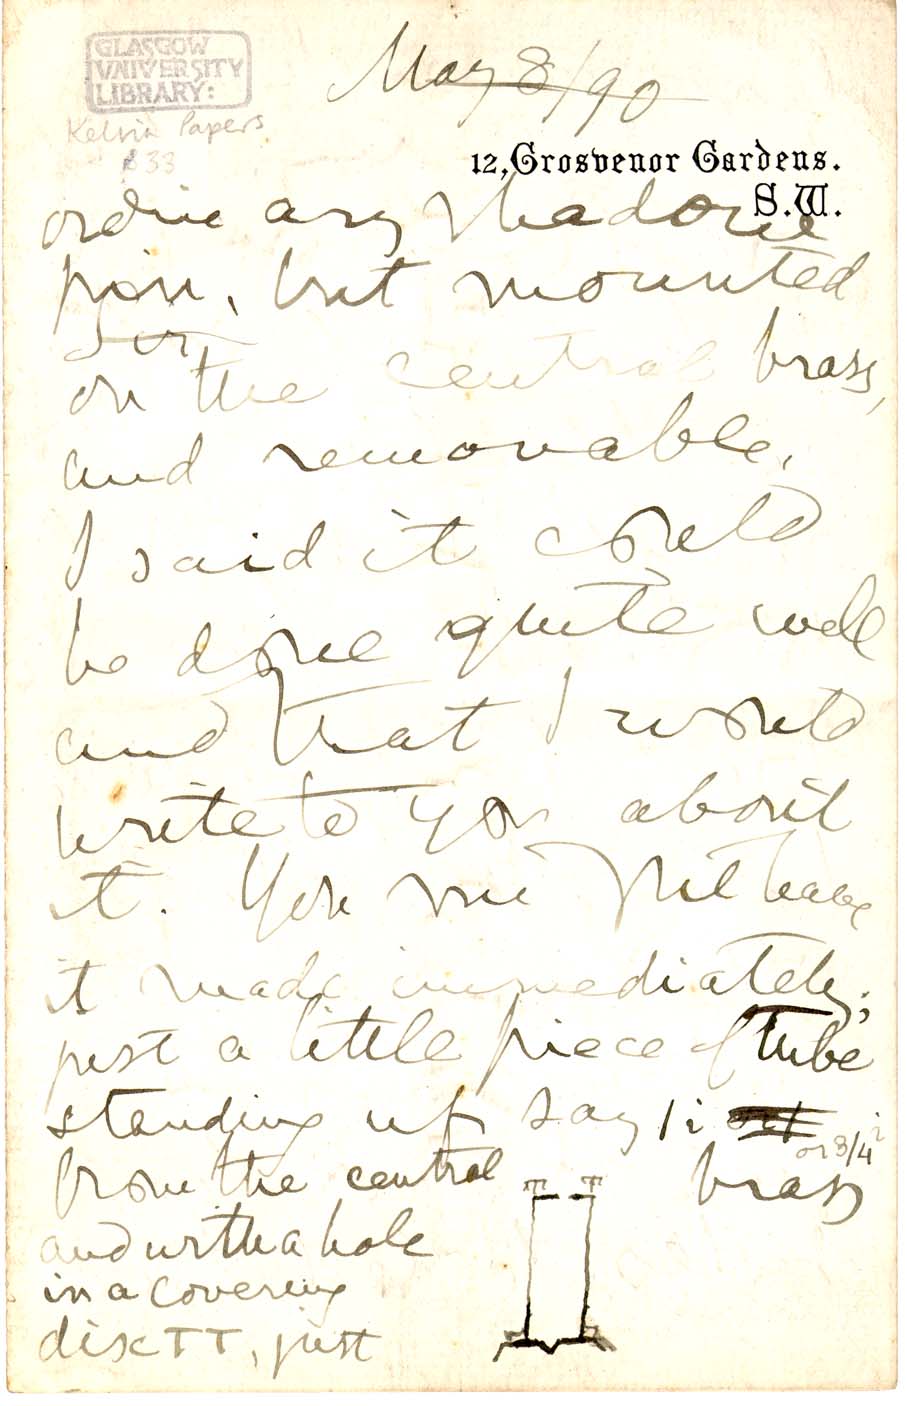 GLASGOW
UNIVERSITY
LIBRARY:
Kelvin Papers
May 8/90
12, Grosvenor Gardens.
S.W.
ordinary shadow
pin, but mounted
on the central brass,
and removable.
I said it could
be done quite well
and that I would
write to you about
it. You might have
it made immediately;
just a little piece of tube
standing up say 1 i
or 3/4 i
from the central brass
TT TT
and with a hole
in a covering
disc TT, just